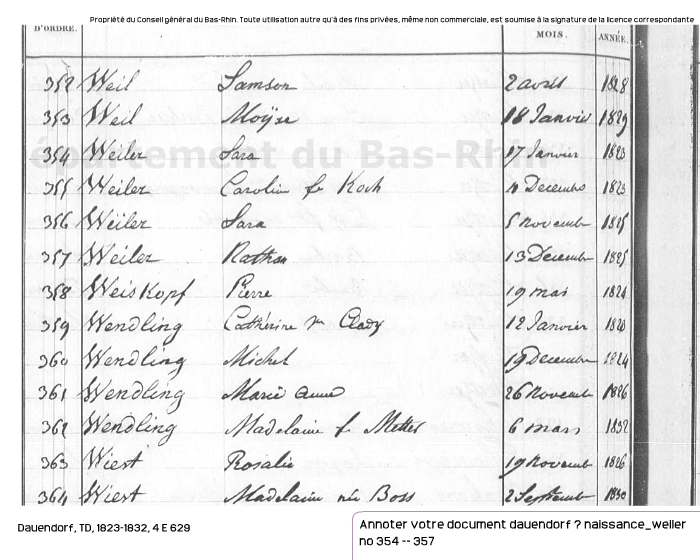 Propriété du Conseil général du Bas-Rhin. Toute utilisation autre qu'à des fins privées, même non commerciale, est soumise à la signature de la licence correspondante
D'ORDRE. MOIS. ANNÉE.
352 Weil Samson 2 avril 1828
353 Weil Moÿse 18 Janvier 1829
354 Weiler Sara 17 Janvier 1823
355 Weiler Carolin fe Koch 4 Decembre 1823
356 Weiler Sara 5 novemb 1825
357 Weiler Nathan 13 Decemb 1825
358 WeisKopf Pierre 19 mai 1824
359 Wendling Cathérine Clady 12 Janvier
360 Wendling Michel 19 Decembre 1824
361 Wendling Marie anne 26 Novemb 1826
362 Wendling Madelaine f Metter 6 mars 1832
363 Wiest Rosalie 19 Novemb 1826
364 Wiest Madelaine née Boss 2 Septemb 1830
département du Bas-Rhin
Dauendorf, TD, 1823-1832, 4 E 629
Annoter votre document dauendorf ? naissance_weiler
no 354 -- 357